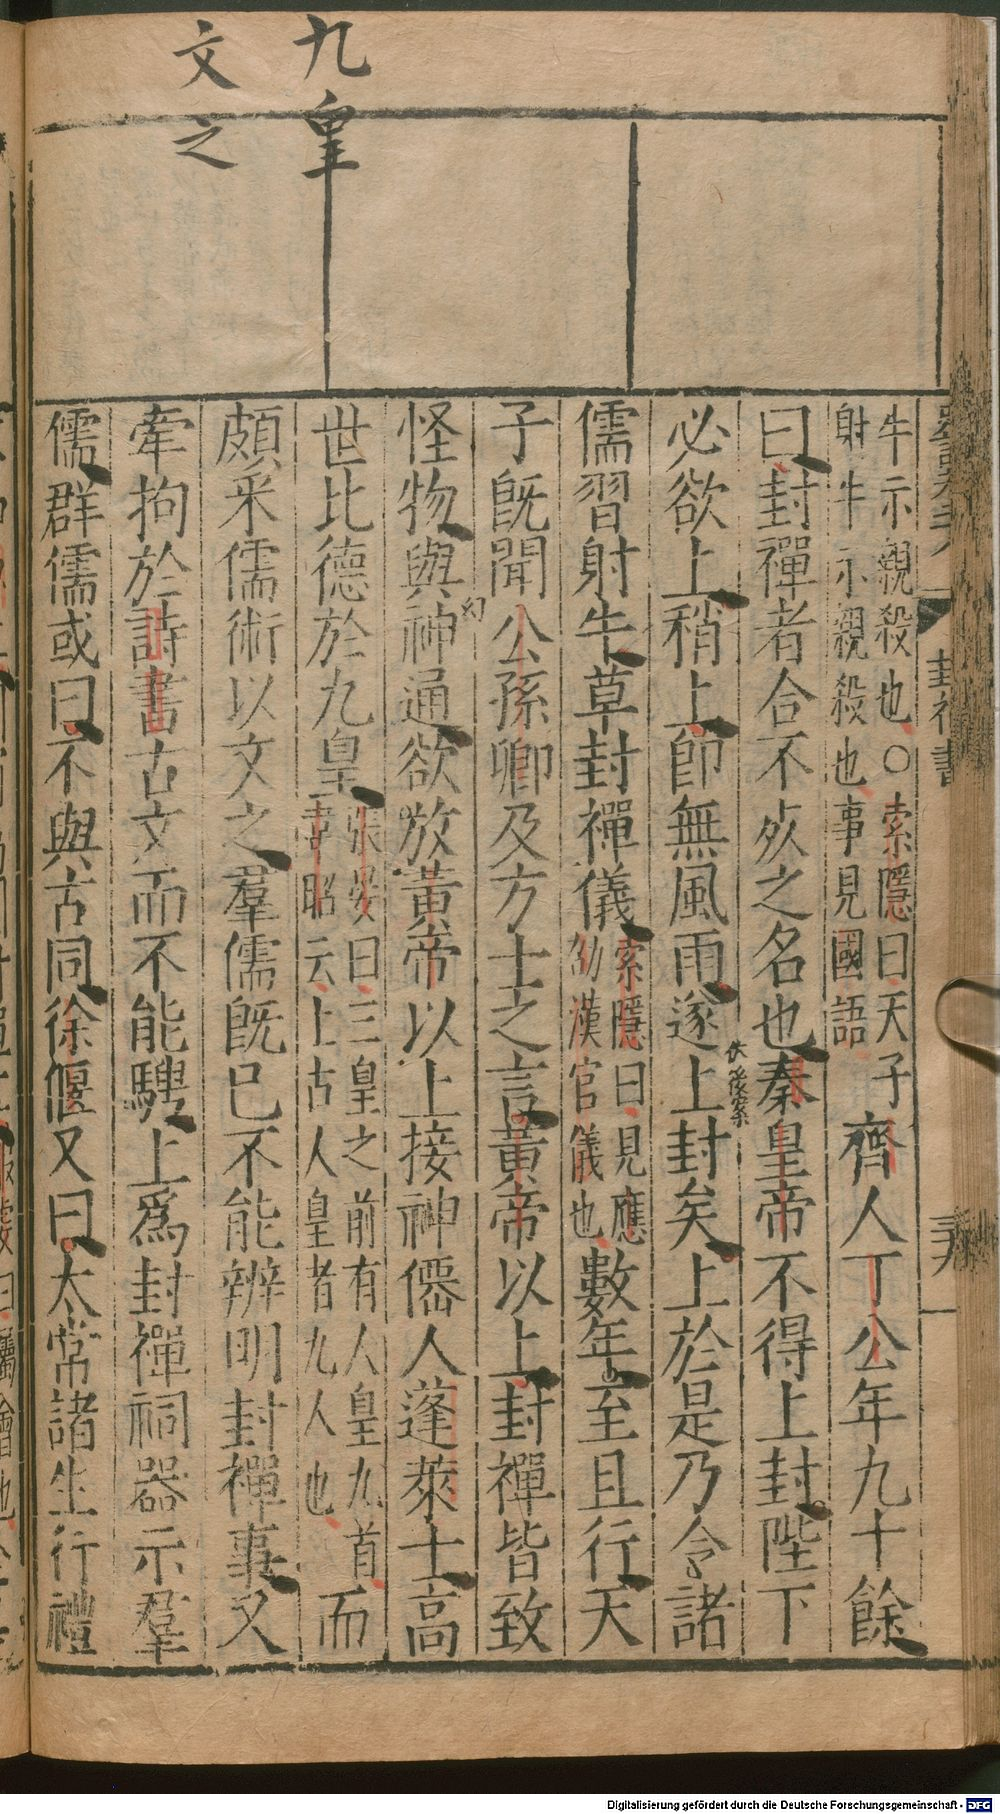 九皇
文之
封禪書
牛示親殺也○索隱曰天子
射牛示親殺也事見國語
齊人丁公年九十餘
曰封禪者合不死之名也秦皇帝不得上封陛下
必欲上稍上即無風雨遂上封矣上於是乃令諸
儒習射牛草封禪儀
索隱曰見應
劭漢官儀也
數年至且行天
子既聞公孫卿及方士之言黃帝以上封禪皆致
怪物與神通欲放黃帝以上接神僊人蓬萊士高
世比德於九皇
張晏曰三皇之前有人皇九首
韋昭云上古人皇者九人也
而
頗采儒術以文之羣儒既已不能辨明封禪事又
牽拘於詩書古文而不能騁上爲封禪祠器示羣
儒群儒或曰不與古同徐偃又曰太常諸生行禮
Digitalisierung gefördert durch die Deutsche Forschungsgemeinschaft - DFG